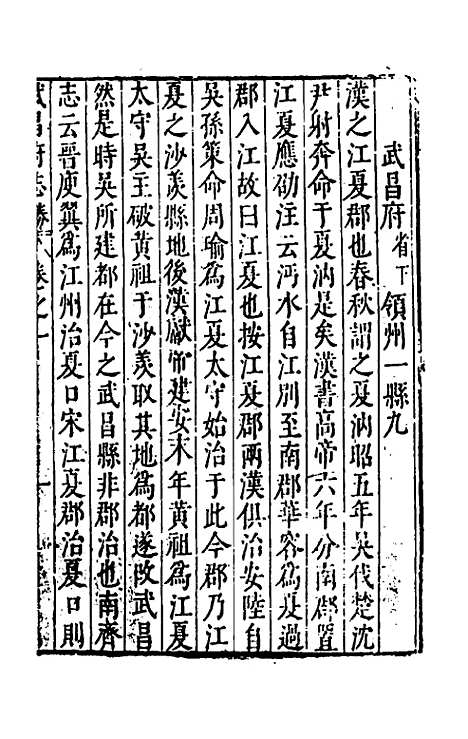 武昌府省下領州一縣九
漢之江夏郡也春秋謂之夏汭昭五年吳伐楚沈
尹射奔命于夏汭是矣漢書高帝六年分南郡置
江夏應劭注云沔水自江別至南郡華容爲夏過
郡入江故曰江夏也按江夏郡兩漢俱治安陸自
吳孫策命周瑜爲江夏太守始治于此今郡乃江
夏之沙羡縣地後漢獻帝建安末年黃祖爲江夏
太守吳主破黃祖于沙羡取其地爲都遂改武昌
然是時吳所建都在今之武昌縣非郡治也南齊
志云晉庾翼爲江州治夏口宋江夏郡治夏口則
武昌府志勝 卷之一